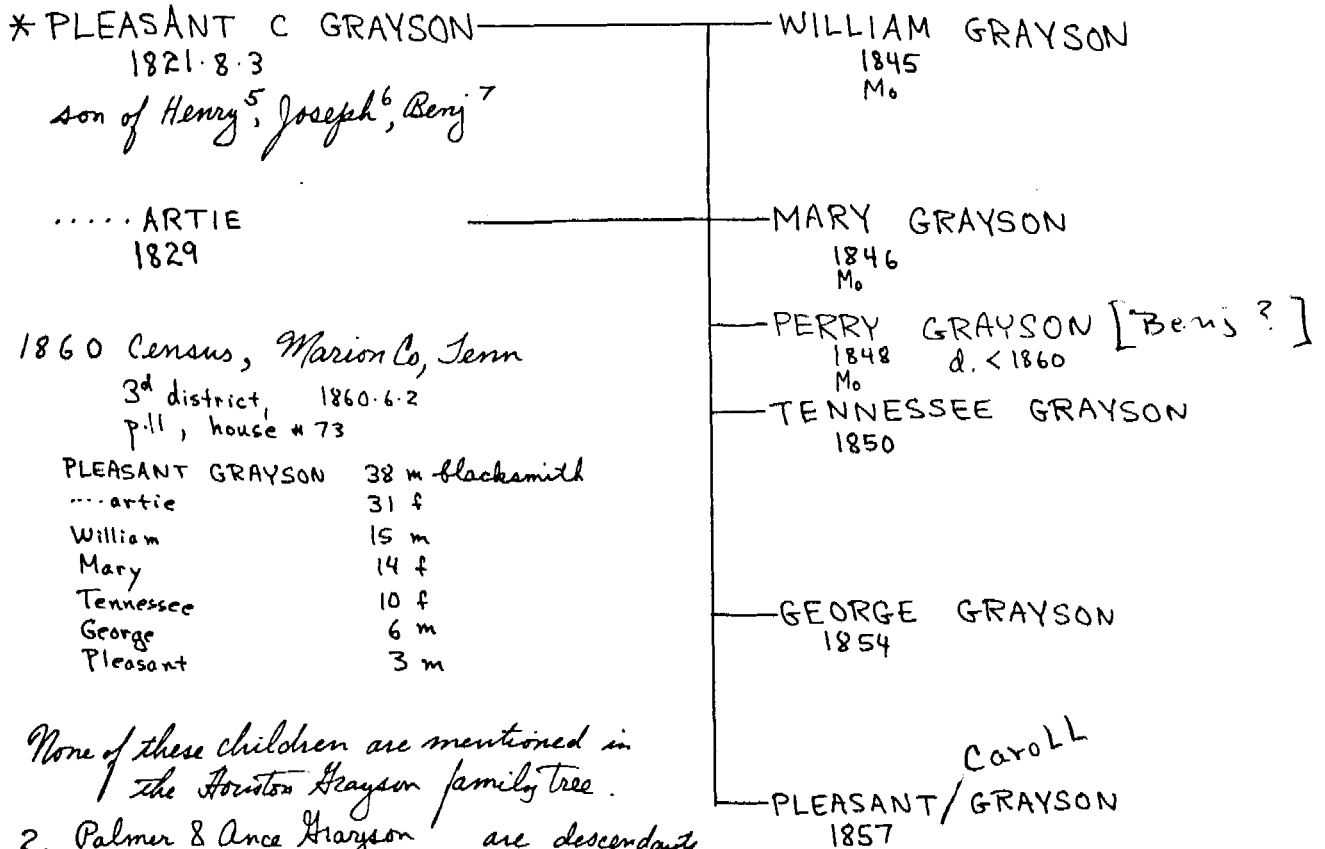 * PLEASANT C GRAYSON
1821·8·3
son of Henry⁵, Joseph⁶, Benj⁷
..... ARTIE
1829
1860 Census, Marion Co, Tenn
3d district, 1860·6·2
p.11, house # 73
PLEASANT GRAYSON 38 m blacksmith
....artie 31 f
William 15 m
Mary 14 f
Tennessee 10 f
George 6 m
Pleasant 3 m
None of these children are mentioned in
the Houston Grayson family tree.
2. Palmer & Ance Grayson are descendants
WILLIAM GRAYSON
1845
Mo
MARY GRAYSON
1846
Mo
PERRY GRAYSON [Benj ?]
1848 d. < 1860
Mo
TENNESSEE GRAYSON
1850
GEORGE GRAYSON
1854
Caroll
PLEASANT / GRAYSON
1857